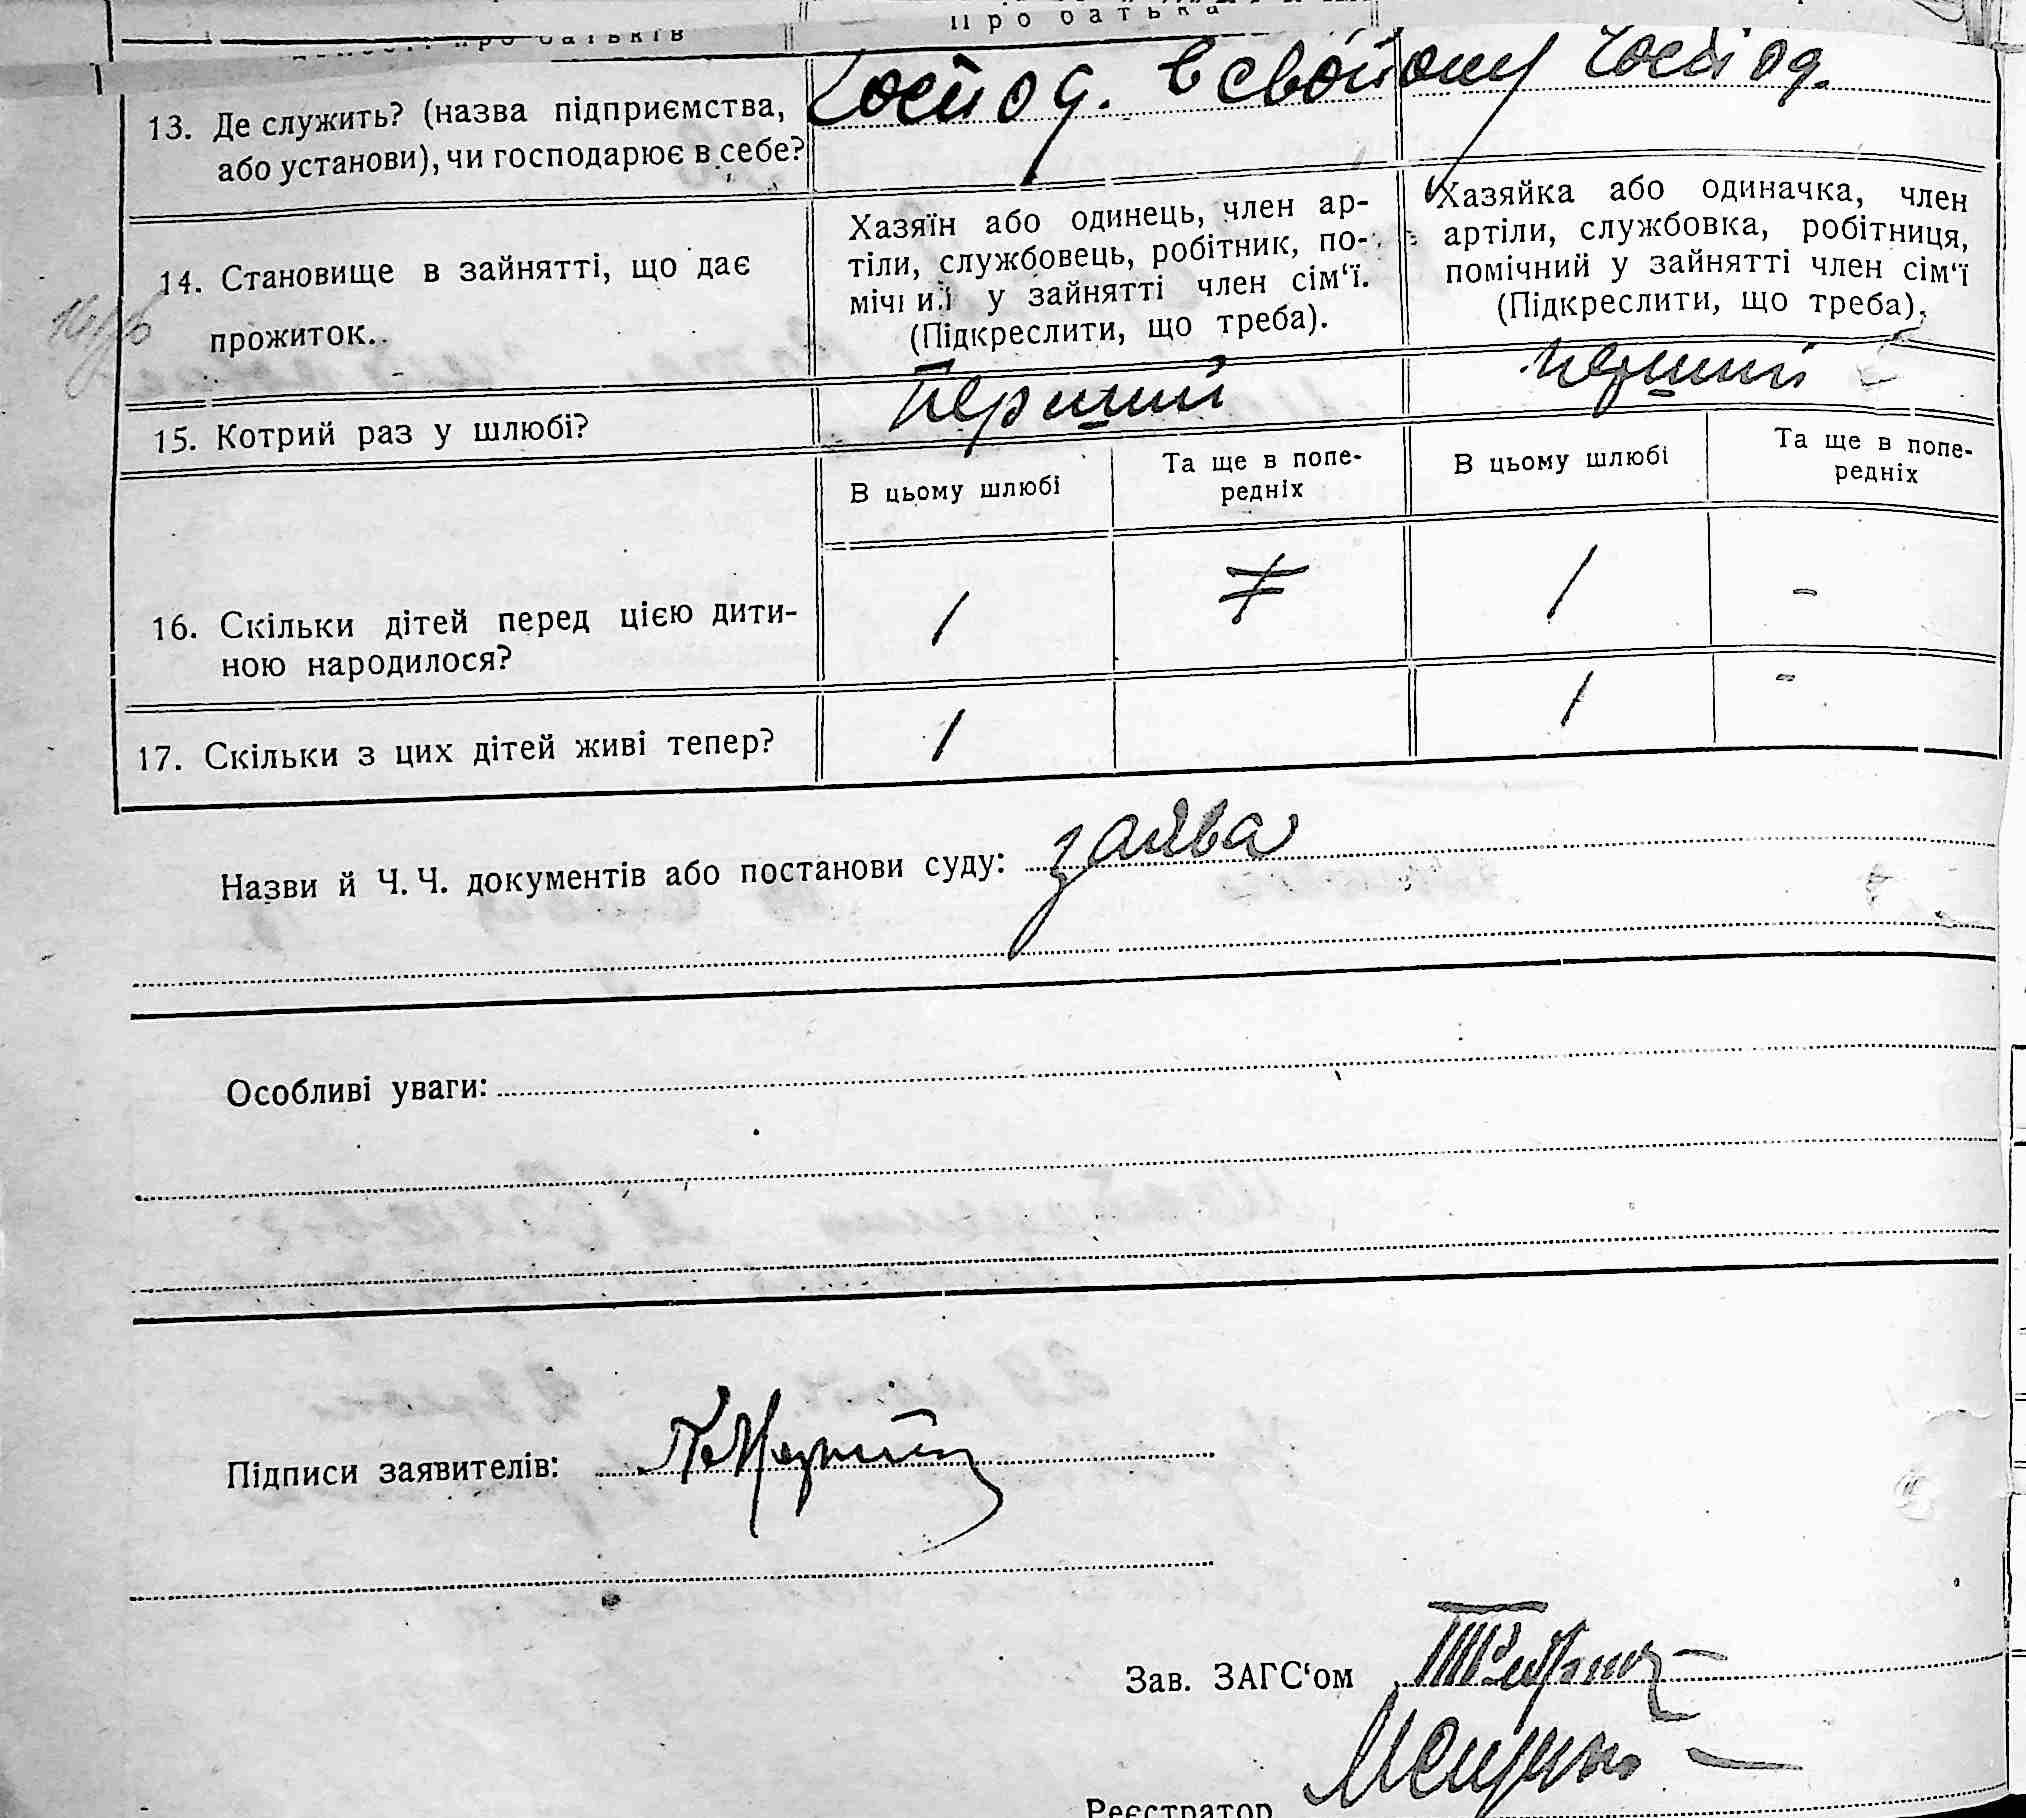 про батька
13. Де служить? (назва підприємства, або установи), чи господарює в себе?
Господ. в свойому господ.
14. Становище в зайнятті, що дає прожиток.
Хазяїн або одинець, член ар-
тіли, службовець, робітник, по-
мічний у зайнятті член сім'ї.
(Підкреслити, що треба).
Хазяйка або одиначка, член
артіли, службовка, робітниця,
помічний у зайнятті член сім'ї
(Підкреслити, що треба).
15. Котрий раз у шлюбі?
Перший
перший
В цьому шлюбі
Та ще в попе-
редніх
В цьому шлюбі
Та ще в попе-
редніх
16. Скільки дітей перед цією дити-
ною народилося?
1
1 -
17. Скільки з цих дітей живі тепер?
1
1 -
Назви й Ч. Ч. документів або постанови суду: заява
Особливі уваги:
Підписи заявителів:
Зав. ЗАГС'ом
Реєстратор